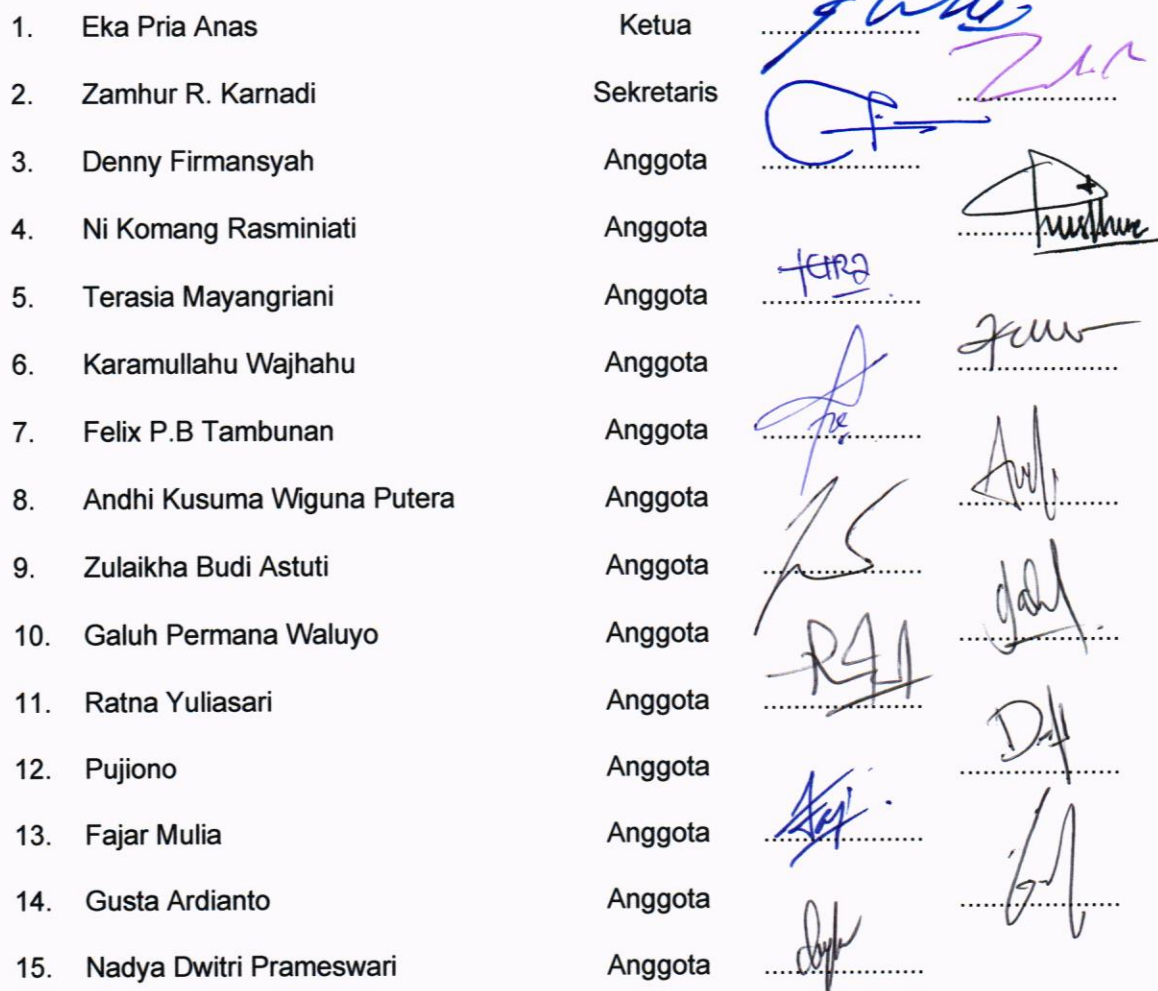 1. Eka Pria Anas Ketua ....................
2. Zamhur R. Karnadi Sekretaris ....................
3. Denny Firmansyah Anggota ....................
4. Ni Komang Rasminiati Anggota ....................
5. Terasia Mayangriani Anggota ....................
6. Karamullahu Wajhahu Anggota ....................
7. Felix P.B Tambunan Anggota ....................
8. Andhi Kusuma Wiguna Putera Anggota ....................
9. Zulaikha Budi Astuti Anggota ....................
10. Galuh Permana Waluyo Anggota ....................
11. Ratna Yuliasari Anggota ....................
12. Pujiono Anggota ....................
13. Fajar Mulia Anggota ....................
14. Gusta Ardianto Anggota ....................
15. Nadya Dwitri Prameswari Anggota ....................